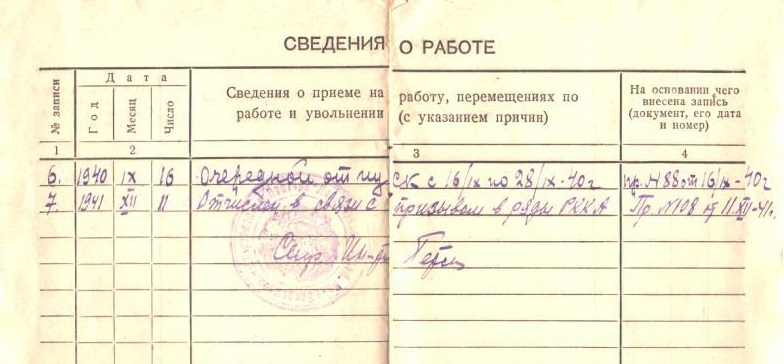 СВЕДЕНИЯ О РАБОТЕ
№ записи
Дата
Год
Месяц
Число
Сведения о приеме на работу, перемещениях по
работе и увольнении (с указанием причин)
На основании чего
внесена запись
(документ, его дата
и номер)
1 2 3 4
6. 1940 IX 16 Очередной отпуск с 16/IX по 28/IX-40г пр. N 88 от 16/IX-40г
7. 1941 XII 11 Отчислен в связи с призывом в ряды РККА Пр. N 108 от 11.XII-41г.